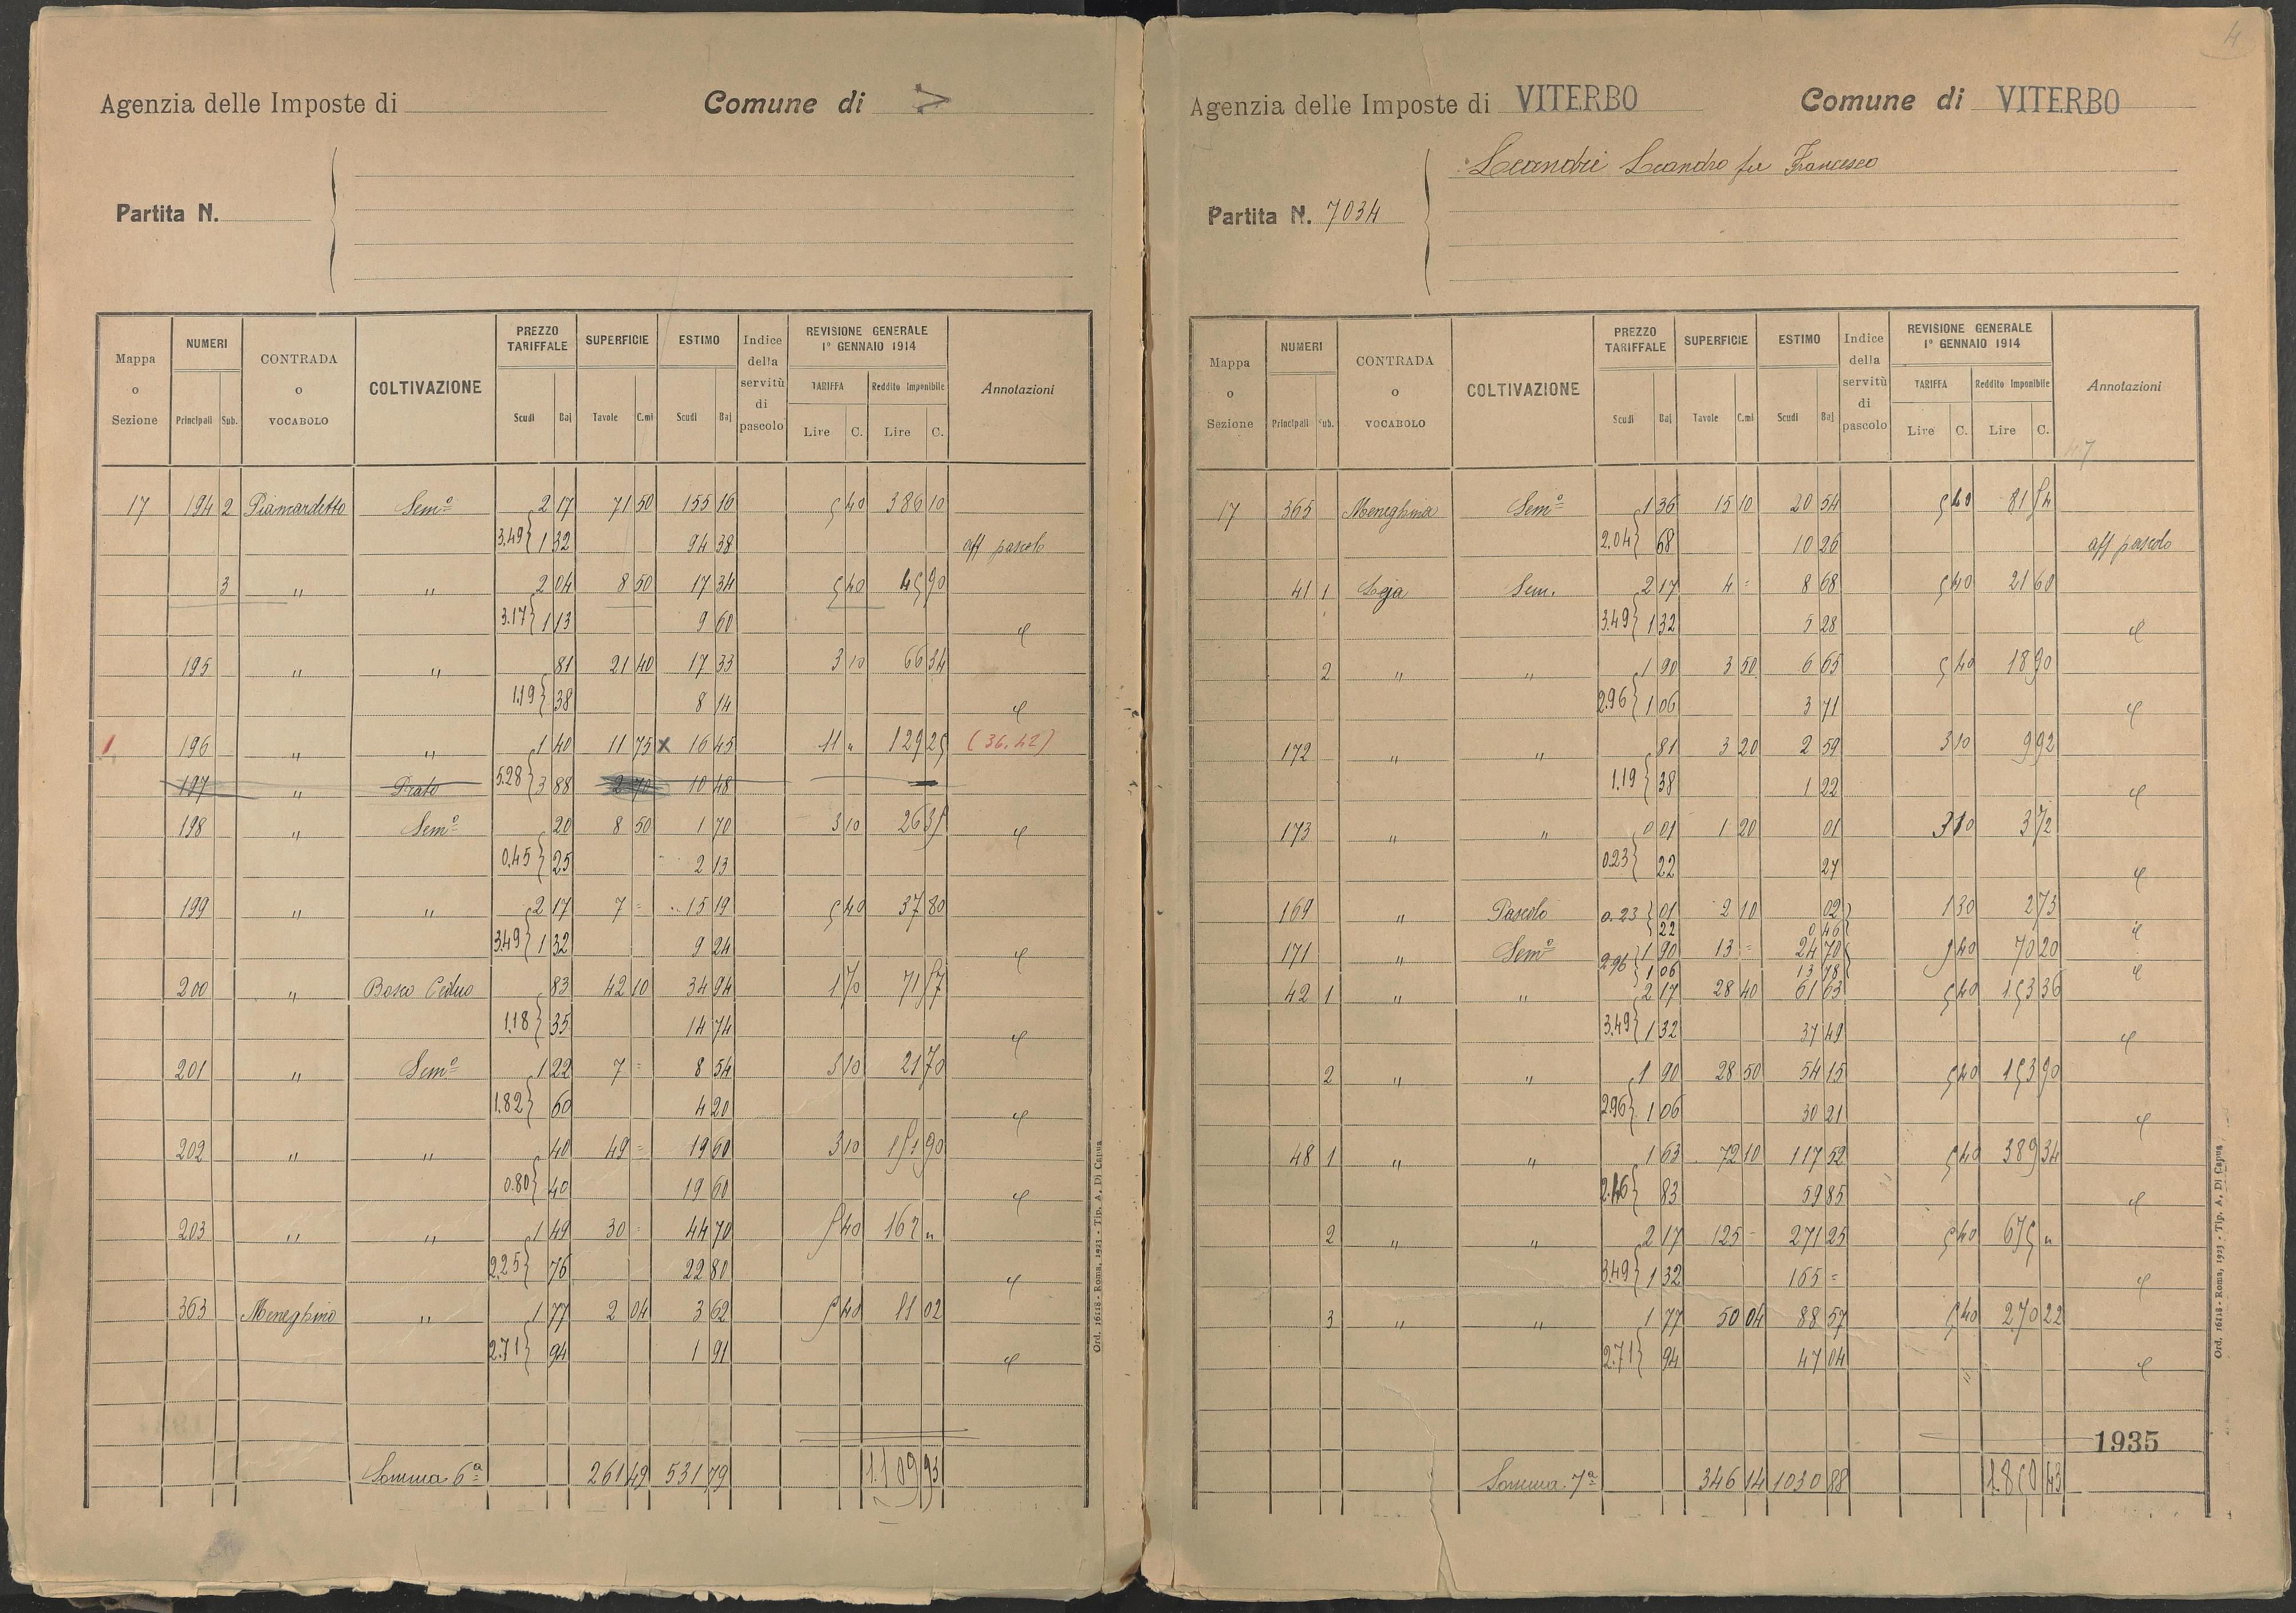 Agenzia delle Imposte di Comune di
Partita N.
Mappa o Sezione NUMERI Principali Sub. CONTRADA o VOCABOLO COLTIVAZIONE PREZZO TARIFFALE Scudi Baj SUPERFICIE Tavole C.mi ESTIMO Scudi Baj Indice della servitù di pascolo REVISIONE GENERALE 1° GENNAIO 1914 TARIFFA Lire C. Reddito Imponibile Lire C. Annotazioni
17 194 2 Piamardetto Sem° 2 17 71 50 155 16 5 40 386 10
3.49 1 32 94 38 aff pascolo
3 " " 2 04 8 50 17 34 5 40 45 90
3.17 1 13 9 60
195 " " 81 21 40 17 33 3 10 66 34
1.19 38 8 14
196 " " 1 40 11 75 x 16 45 11 " 129 25 (36.42)
197 " Prato 5.28 3 88 2 70 10 48
198 " Sem° 20 8 50 1 70 3 10 26 35
0.45 25 2 13
199 " " 2 17 7 = 15 19 5 40 37 80
3.49 1 32 9 24
200 " Bosco Ceduo 83 42 10 34 94 1 70 71 57
1.18 35 14 74
201 " Sem° 1 22 7 = 8 54 3 10 21 70
1.82 60 4 20
202 " " 40 49 = 19 60 3 10 151 90
0.80 40 19 60
203 " " 1 49 30 = 44 70 5 40 162 "
2.25 76 22 80
363 Meneghino " 1 77 2 04 3 62 5 40 11 02
2.71 94 1 91
Somma 6ª 261 49 531 79 1.109 93
Ord. 16118 - Roma, 1923 - Tip. A. Di Capua
4
Agenzia delle Imposte di VITERBO Comune di VITERBO
Leandri Leandro fu Francesco
Partita N. 7034
Mappa o Sezione NUMERI Principali Sub. CONTRADA o VOCABOLO COLTIVAZIONE PREZZO TARIFFALE Scudi Baj SUPERFICIE Tavole C.mi ESTIMO Scudi Baj Indice della servitù di pascolo REVISIONE GENERALE 1° GENNAIO 1914 TARIFFA Lire C. Reddito Imponibile Lire C. Annotazioni
47
17 365 Meneghina Sem° 1 36 15 10 20 54 5 40 81 54
2.04 68 10 26 aff pascolo
41 1 Leja Sem. 2 17 4 = 8 68 5 40 21 60
3.49 1 32 5 28
2 " " 1 90 3 50 6 65 5 40 18 90
2.96 1 06 3 71
172 " " 81 3 20 2 59 3 10 9 92
1.19 38 1 22
173 " " 0 01 1 20 01 3 10 3 72
0.23 22 27
169 " Pascolo 0.23 01 2 10 02 1 30 2 73
22 0 46
171 " Sem° 2.96 1 90 13 = 24 70 5 40 70 20
1 06 13 78
42 1 " " 2 17 28 40 61 63 5 40 153 36
3.49 1 32 37 49
2 " " 1 90 28 50 54 15 5 40 153 90
2.96 1 06 30 21
48 1 " " 1 63 72 10 117 52 5 40 389 34
2.46 83 59 85
2 " " 2 17 125 = 271 25 5 40 675 "
3.49 1 32 165 =
3 " " 1 77 50 04 88 57 5 40 270 22
2.71 94 47 04
1935
Somma 7ª 346 14 1030 88 1.850 43
Ord. 16118 - Roma, 1923 - Tip. A. Di Capua